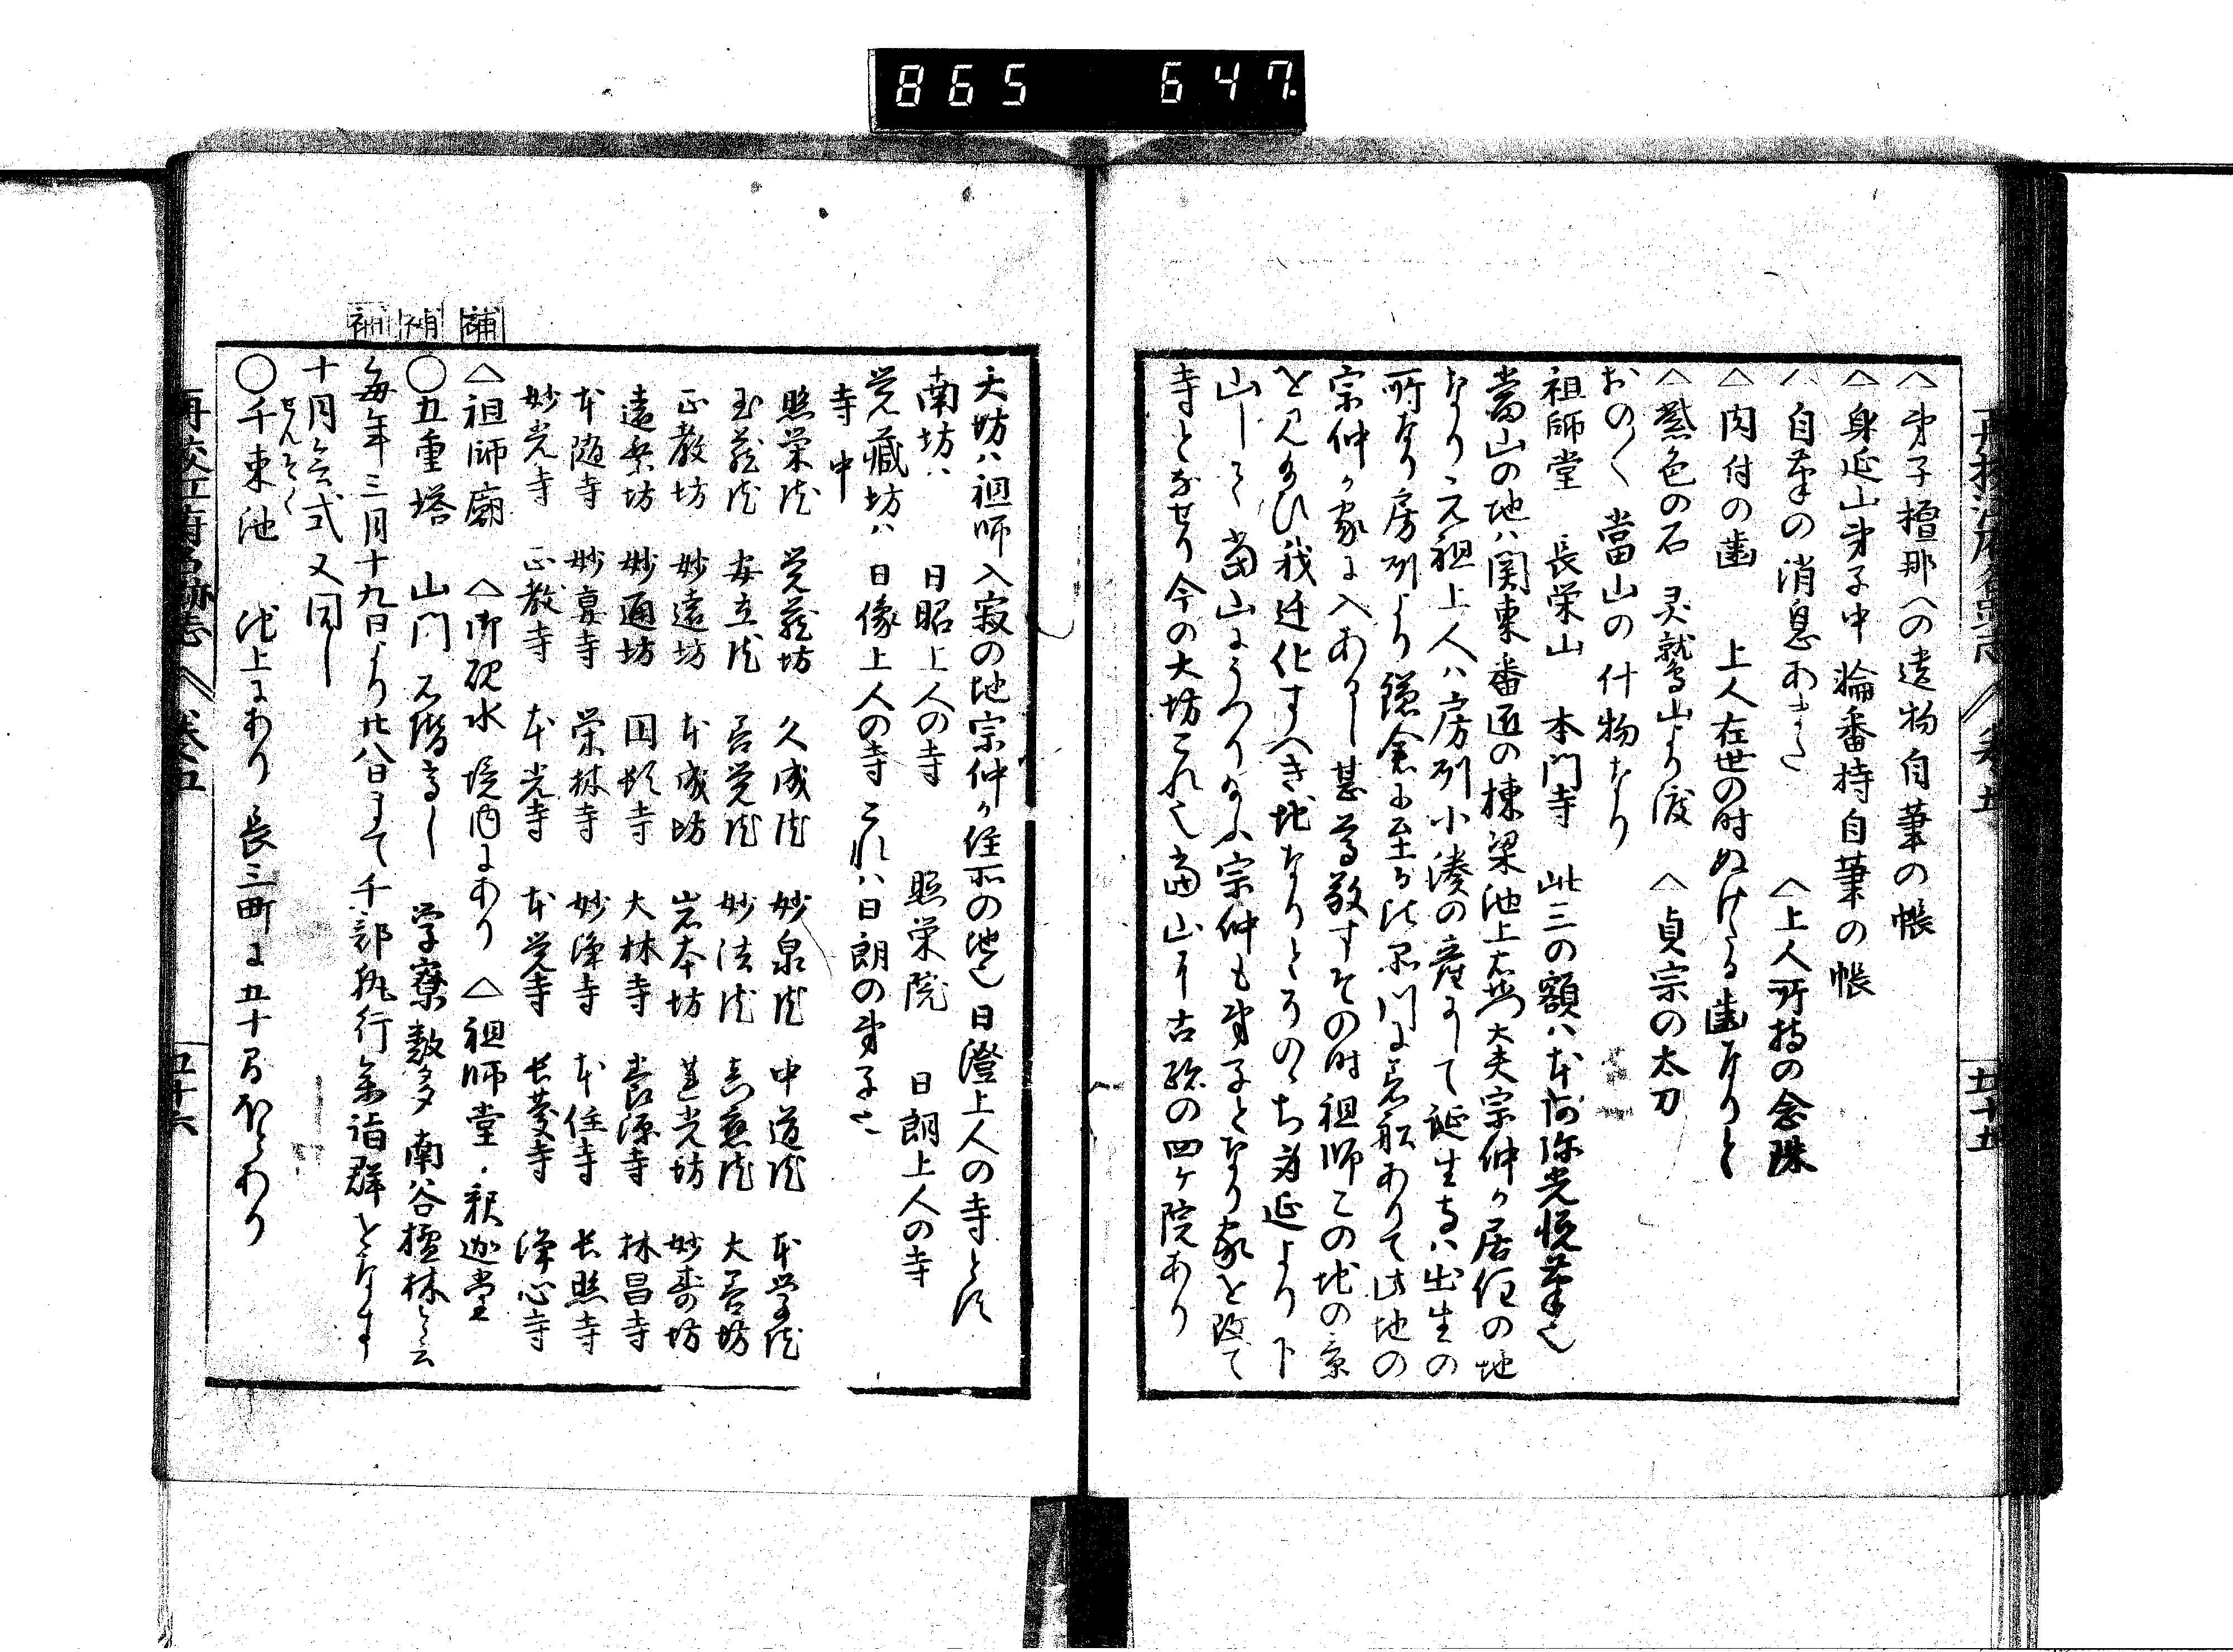 865 647.
再校江府名跡志 巻五 五十五
へ弟子檀那への遺物自筆の帳
へ身延山弟子中輪番持自筆の帳
へ自筆の消息あまた へ上人所持の念珠
へ肉付の歯 上人在世の時ぬけたる歯なりと
へ紫色の石 灵鷲山より渡 へ貞宗の太刀
おの〱 當山の什物なり
祖師堂 長栄山 本門寺 此三の額ハ本阿弥光悦筆也
當山の地ハ関東番匠の棟梁池上右衛門大夫宗仲か居住の地
なり 元祖上人ハ房州小湊の産にして誕生寺ハ出生の
所なり房州より鎌倉に至る 品川に着船ありて此地の
宗仲か家に入あり 甚尊敬すその時祖師この地の景
を見給ひ我迁化すへき地なりと 身延より下
山して當山にうつり給ふ宗仲も弟子となり家を改て
寺となせり今の大坊これ也 當山に古跡の四ケ院あり
大坊ハ祖師入寂の地宗仲か住所の地也 日澄上人の寺とす
南坊ハ 日昭上人の寺 照栄院 日朗上人の寺
覚蔵坊ハ 日像上人の寺 これハ日朗の弟子也
寺中
照栄坊 覚蔵坊 久成坊 妙泉坊 中道坊 本学坊
玉蔵坊 安立坊 善覚坊 妙法坊 真應坊 大善坊
正教坊 妙遠坊 本成坊 岩本坊 蓮光坊 妙寿坊
遠乗坊 妙通坊 円頓寺 大林寺 養源寺 林昌寺
本随寺 妙真寺 栄林寺 妙浄寺 本住寺 長照寺
妙光寺 正教寺 本光寺 本覚寺 長慶寺 浄心寺
補 △祖師廟 へ御硯水 境内にあり △祖師堂・釈迦堂
補 〇五重塔 山門 石階高し 学寮数多 南谷檀林と云
補 毎年三月十九日より廿八日まて千部執行参詣群をなす
十月会式又同し
〇千束池 せんぞく 池上にあり 長三町に五十間ほとあり
再校江府名跡志 巻五 五十六